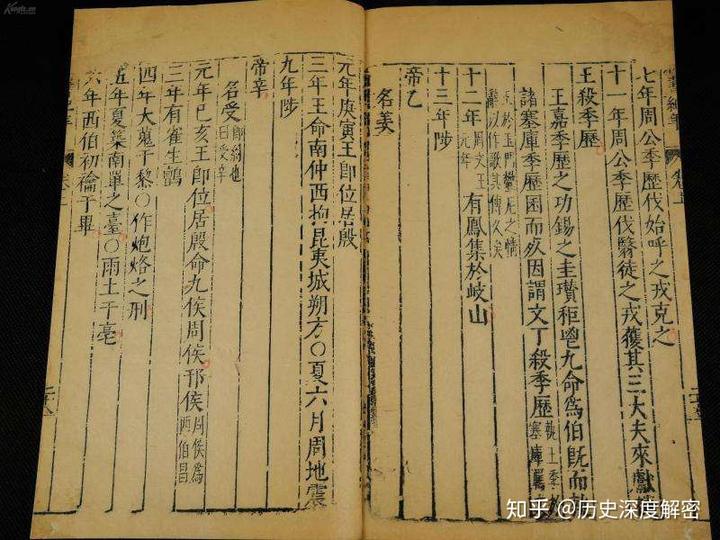 七年周公季歷伐始呼之戎克之
十一年周公季歷伐翳徒之戎獲其三大夫來獻
王殺季歷
王嘉季歷之功錫之圭瓚秬鬯九命為伯既而
諸塞庫季歷困而死因謂文丁殺季歷
十二年周文王元年有鳳集於岐山
十三年陟
帝乙
名羡
元年庚寅王即位居殷
三年王命南仲西拘昆夷城朔方〇夏六月周地震
九年陟
帝辛
名受即紂也曰受辛
元年己亥王即位居殷命九侯周侯邘侯周侯為西伯昌
三年有雀生鸇
四年大蒐于黎〇作炮烙之刑
五年夏築南單之臺〇雨土于亳
六年西伯初禴于畢
知乎 @历史深度解密